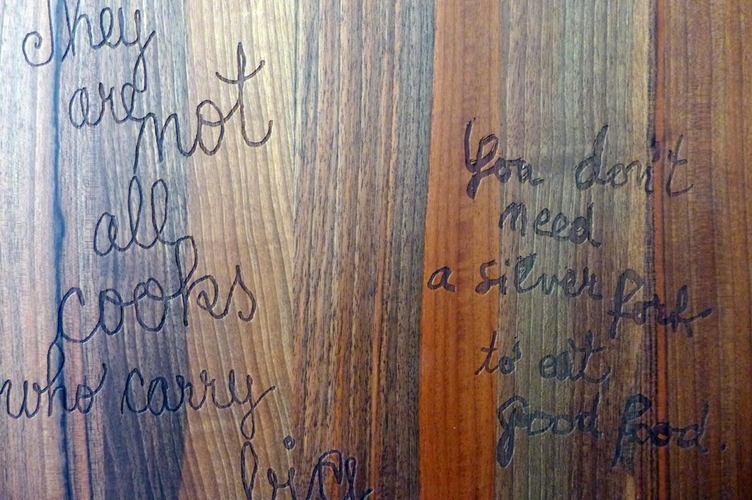 They
are not
all
cooks
who carry
You don't
need
a silver fork
to eat
good food.